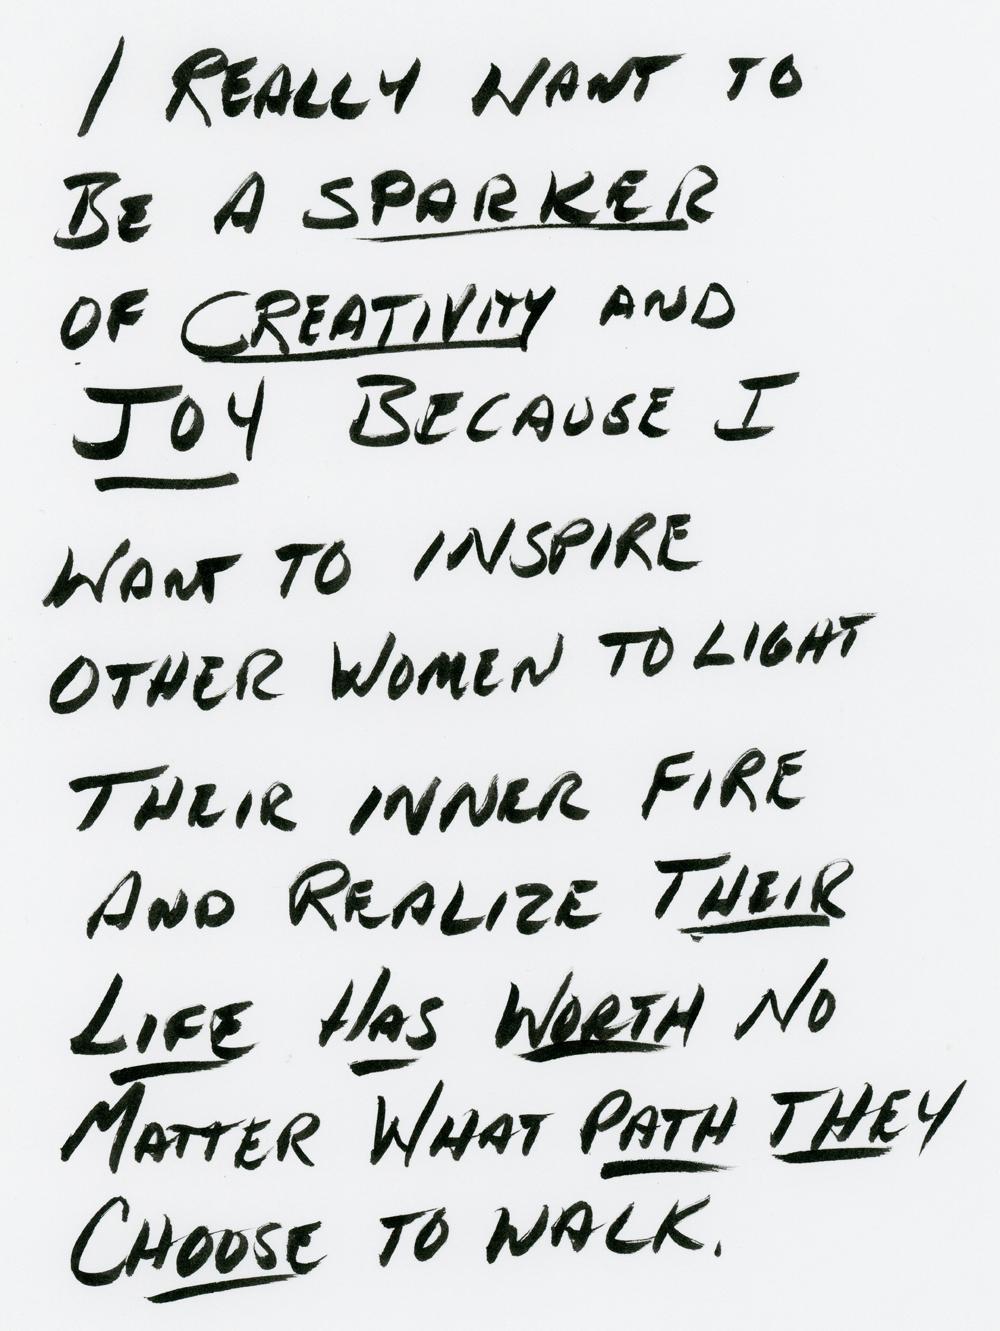 I REALLY WANT TO
BE A SPARKER
OF CREATIVITY AND
JOY BECAUSE I
WANT TO INSPIRE
OTHER WOMEN TO LIGHT
THEIR INNER FIRE
AND REALIZE THEIR
LIFE HAS WORTH NO
MATTER WHAT PATH THEY
CHOOSE TO WALK.